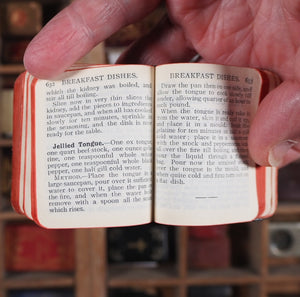 652 BREAKFAST DISHES.
which the kidney was boiled, and
stir all till boiling.
Slice now in very thin slices the
kidney, add the pieces to ingredients
in saucepan, and when all has cooked
slowly for ten minutes, sprinkle in
the seasoning, and the dish is now
ready for the table.
Jellied Tongue.—One ox tongue,
one quart beef stock, one onion, one
carrot, nine whole
pepper, one teaspoonful whole black
pepper, one half gill cold water.
METHOD.—Place the tongue in a
large saucepan, pour over it sufficient
water to cover it, place the pan on
the fire, and when the water is hot
remove with a spoon all the scum
which rises.
BREAKFAST DISHES. 653
Draw the pan then on one side, and
allow the tongue to cook slowly till
tender, allowing quarter of an hour
to each pound.
When the tongue is ready take it
from the water, skin it
and place it in a
gelatine for ten minutes in a
cold water
with the stock and
all over the fire till boiling
the liquid through a
Pour now the strained
over the tongue in the mould, and
when quite cold and firm turn out on
a flat dish.